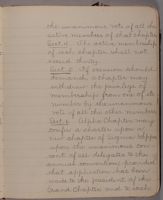 the unanimous vote of all the
active members of that chapter.
Sect. 4. The active membership
of each chapter shall not
exceed thirty.
Sect. 5. If occasion should
demand, a chapter may
withdraw the privilege of
membership from one of its
number by the unanimous
vote of all the other members.
Sect. 6. Alpha Chapter may
confer a charter upon a
new chapter of Sigma Kappa
upon the unanimous con-
sent of all delegates to the
annual convention, provided
that application has been
made to the president of the
Grand Chapter and to each